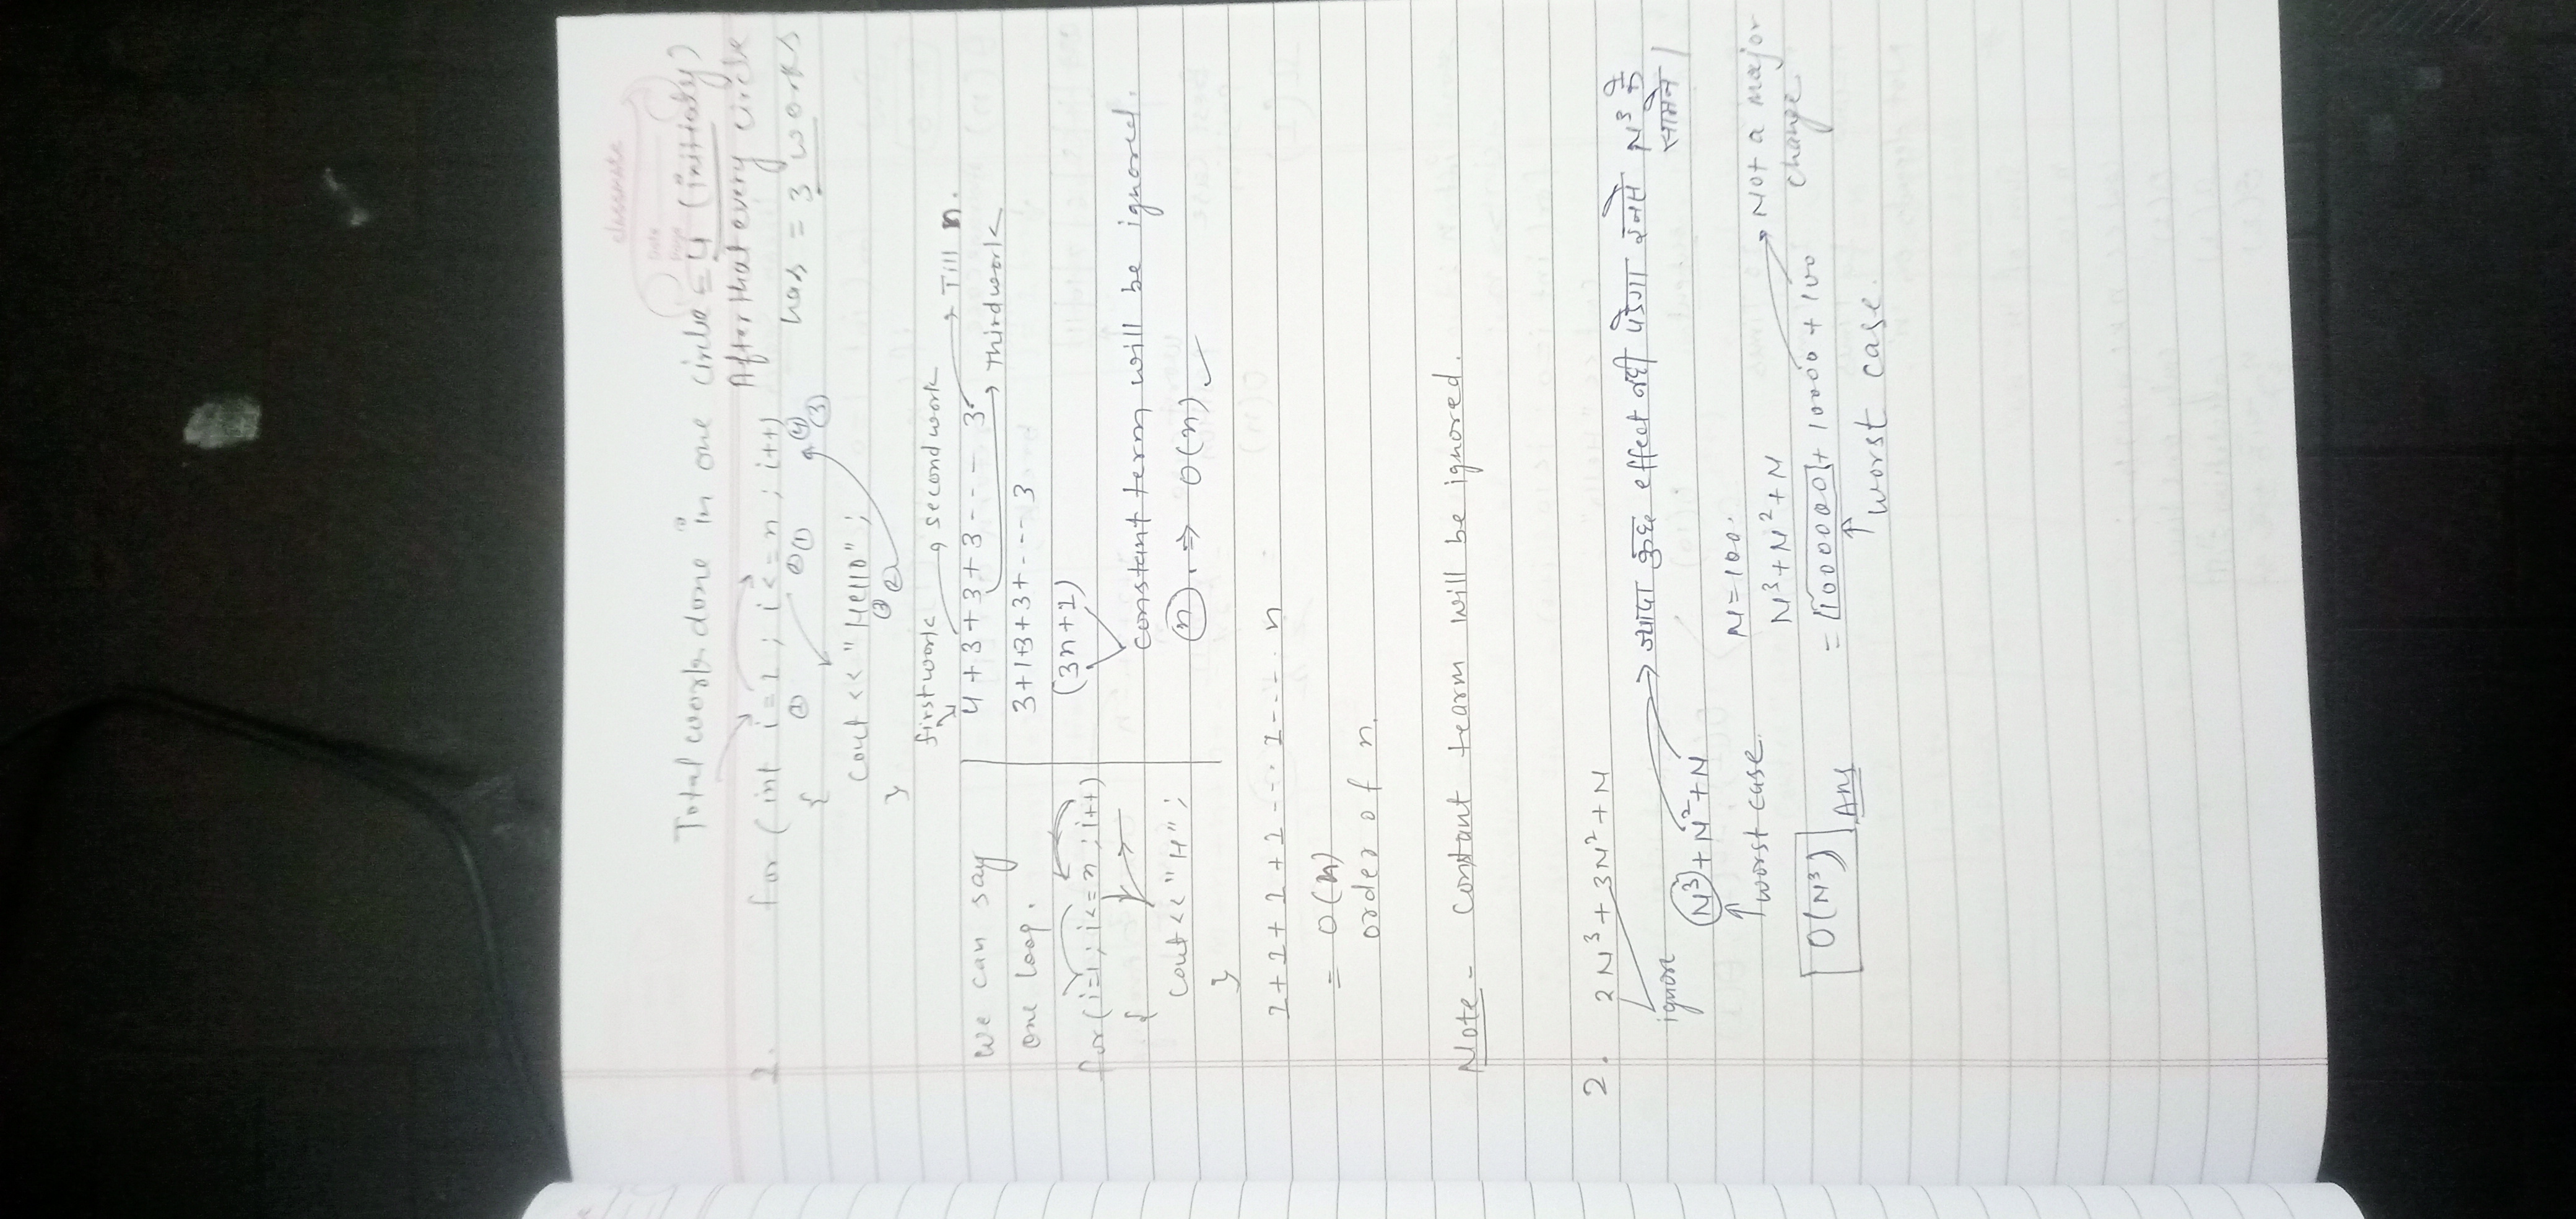 classmate
Date
Page
Total work done in one circle = 4 (initialy)
After that every circle
has = 3 works
1. for (int i=1 ; i<=n ; i++)
① ② ① ④ ③
{
cout << "Hello" ;
③ ②
}
first work → second work
4 + 3 + 3 + 3 - - - - 3 → Till n.
→ Third work
3+1+3+3+ - - - - 3
(3n+1)
constant term will be ignored.
n . ⇒ O(n) ✓
we can say
one loop.
for (i=1 ; i<=n ; i++)
{
cout << "H" ;
}
1 + 1 + 1 + 1 - - - 1 - - - - n
= O(n)
order of n.
Note - Constant tearm will be ignored.
2. 2N³ + 3N² + N
ignore
→ ज्यादा कुछ effect नही पडेगा इनसे N³ के
सामने |
N³ + N² + N
↑ worst case.
O(N³) Ans
N = 100.
N³ + N² + N
→ Not a major
change
= 1000000 + 10000 + 100
↑ worst case.